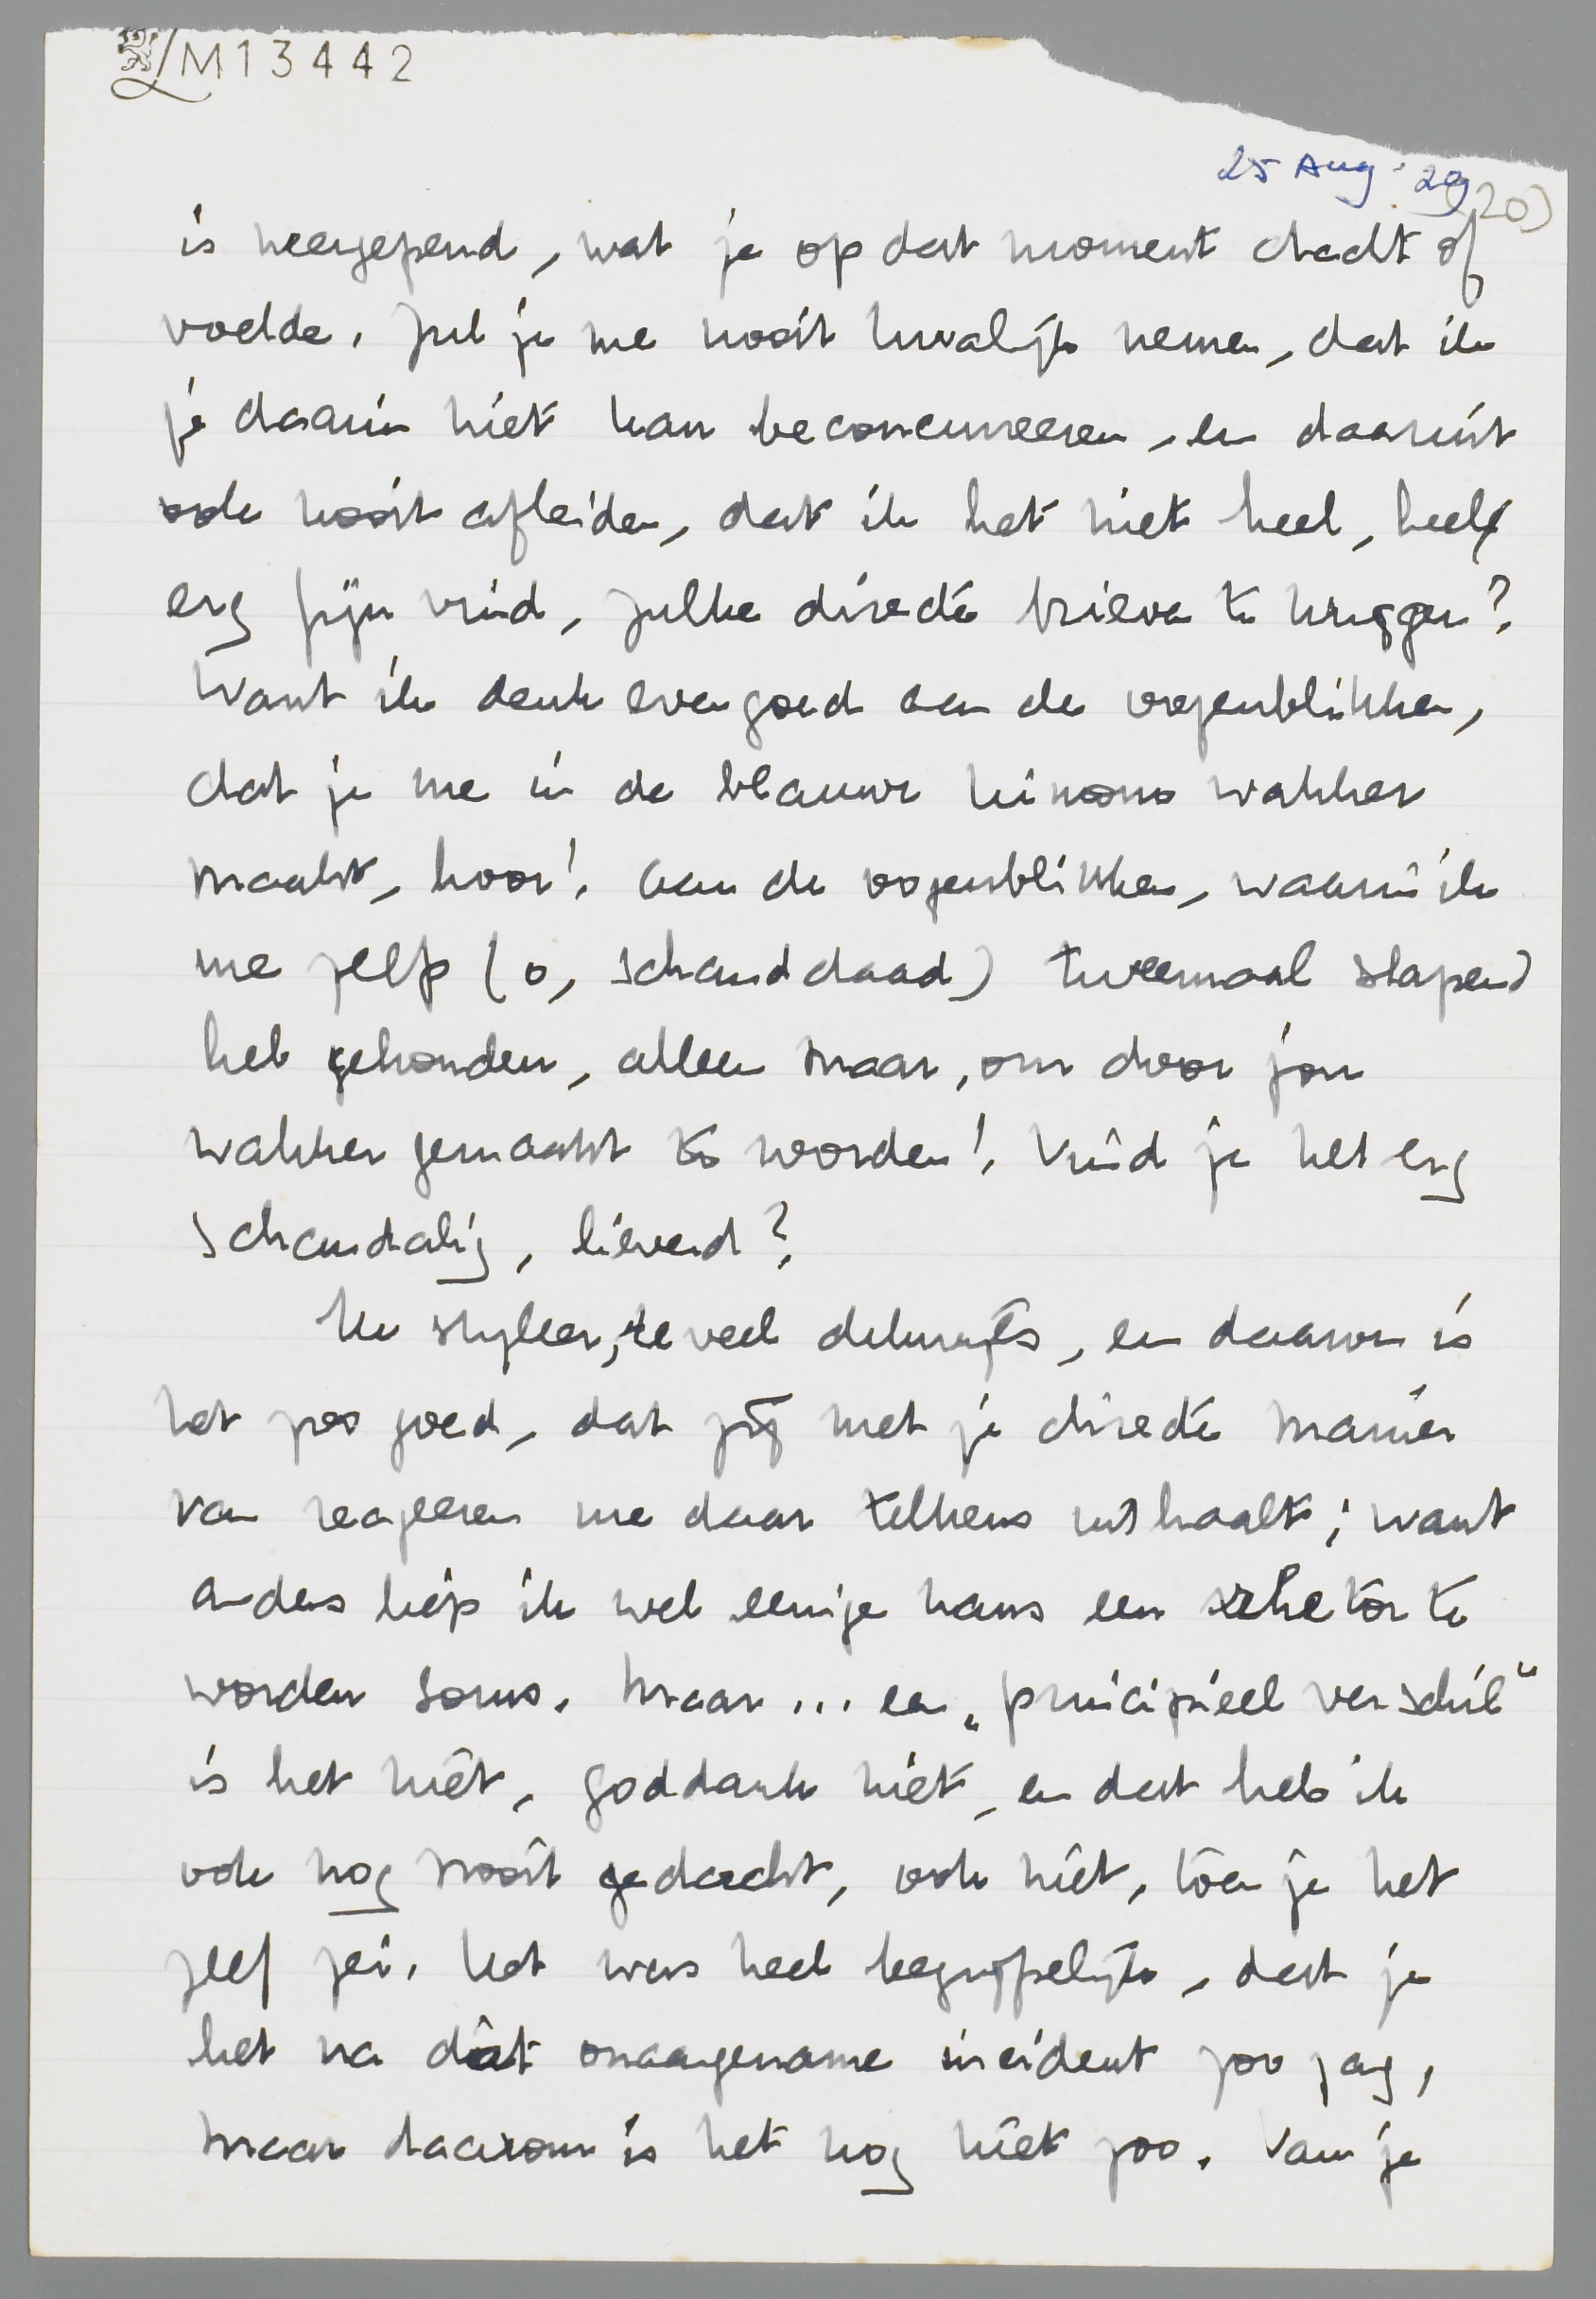 M13442
25 Aug. 29
(20)
is neergepend, wat je op dat moment dacht of
voelde. Zul je me nooit kwalijk nemen, dat ik
je daarin niet kan beconcurreeren, en daaruit
ook nooit afleiden, dat ik het niet heel, heel
erg fijn vind, zulke directe brieven te krijgen?
Want ik denk evengoed aan de oogenblikken,
dat je me in de blauwe kimono wakker
maakt, hoor! aan de oogenblikken, waarin ik
me zelf (o, schanddaad) tweemaal slapend
heb gehouden, alleen maar, om door jou
wakker gemaakt te worden! Vind je het erg
schandalig, lieverd?
Ik styleer, te veel dikwijls, en daarom is
het zoo goed, dat jij met je directe manier
van reageeren me daar telkens uithaalt; want
anders liep ik wel eenige kans een rhetor te
worden soms. Maar ... een „principieel verschil"
is het niet, goddank niet, en dat heb ik
ook nog nooit gedacht, ook niet, toen je het
zelf zei. Het was heel begrijpelijk, dat je
het na dàt onaangename incident zoo zag,
maar daarom is het nog niet zoo. Van je